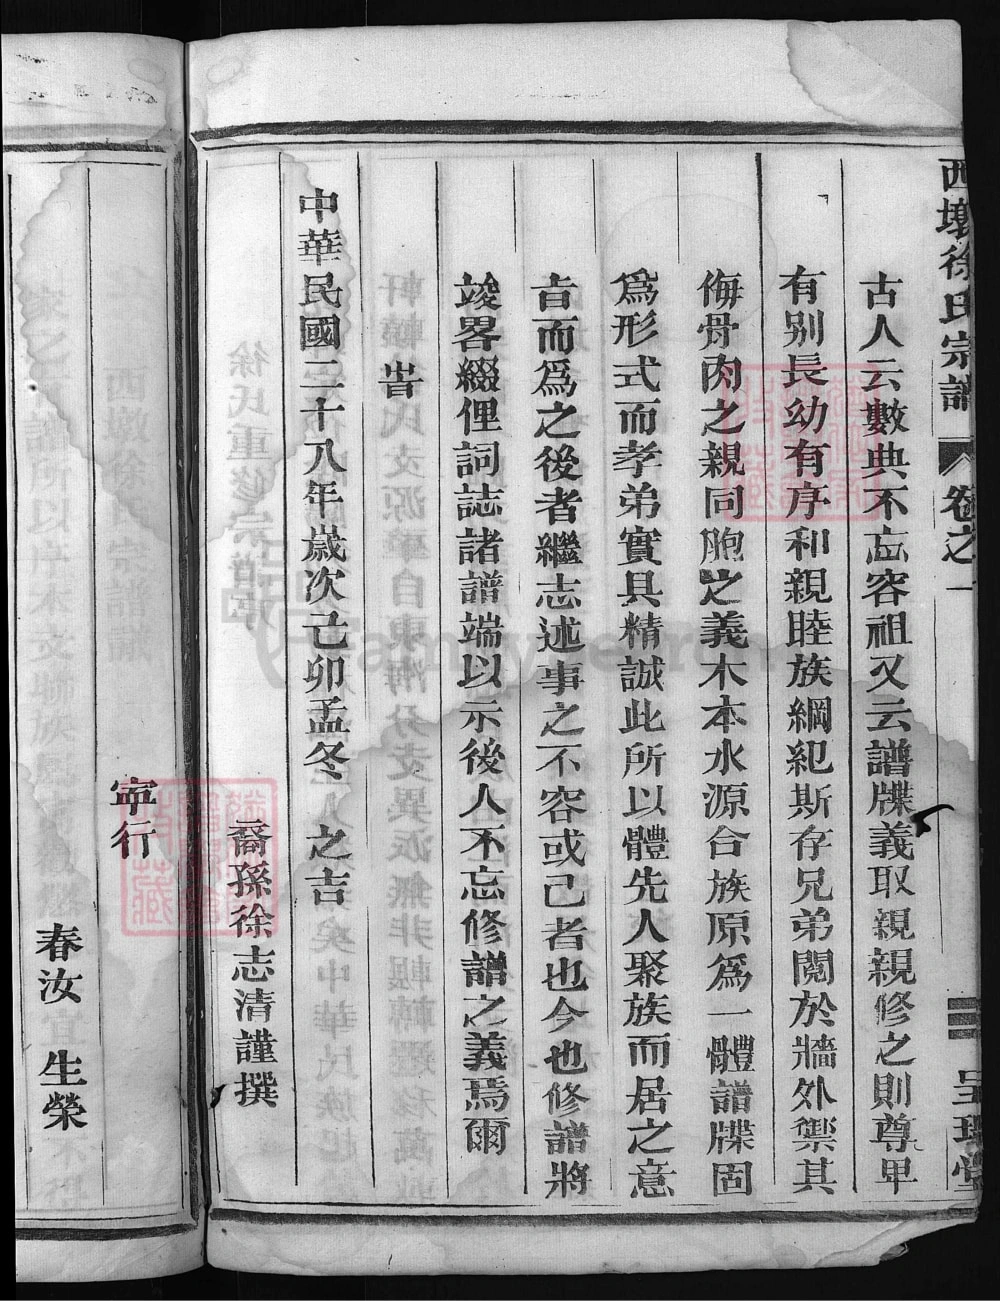 西壤徐氏宗譜 卷之一
三 呈瑞堂
古人云數典不忘容祖又云譜牒義取親親修之則尊卑
有別長幼有序和親睦族綱紀斯存兄弟鬩於牆外禦其
侮骨肉之親同胞之義木本水源合族原爲一體譜牒固
爲形式而孝弟實具精誠此所以體先人聚族而居之意
㫖而爲之後者繼志述事之不容或已者也今也修譜將
竣畧綴俚詞誌諸譜端以示後人不忘修譜之義焉爾
旹
中華民國二十八年歲次己卯孟冬 之吉
裔孫徐志清謹撰
寧行
春汝宜生榮